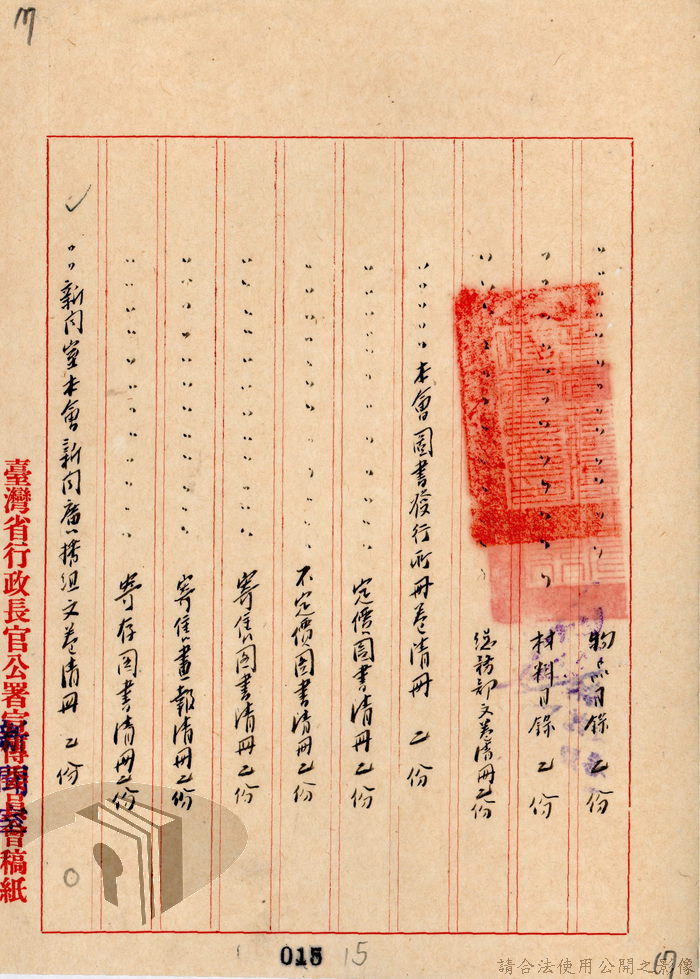 〃〃〃〃〃〃〃〃〃〃〃〃物品目錄乙份
〃〃〃〃〃〃〃〃〃〃〃材料目錄乙份
〃〃〃總務部文卷清冊乙份
〃〃〃〃〃本會圖書發行所冊卷清冊 乙份
〃〃〃〃〃〃〃〃〃〃〃〃定價圖書清冊乙份
〃〃〃〃〃〃〃〃〃〃〃不定價圖書清冊乙份
〃〃〃〃〃〃〃〃〃〃〃〃寄售圖書清冊乙份
〃〃〃〃〃〃〃〃〃〃〃〃寄售畫報清冊乙份
〃〃〃〃〃〃〃〃〃〃〃〃寄存圖書清冊乙份
〃〃新闻室本會新闻廣播组文卷清冊 乙份
臺灣省行政長官公署宣傳委員會稿紙
新聞室
015 15
17
請合法使用公開之影像